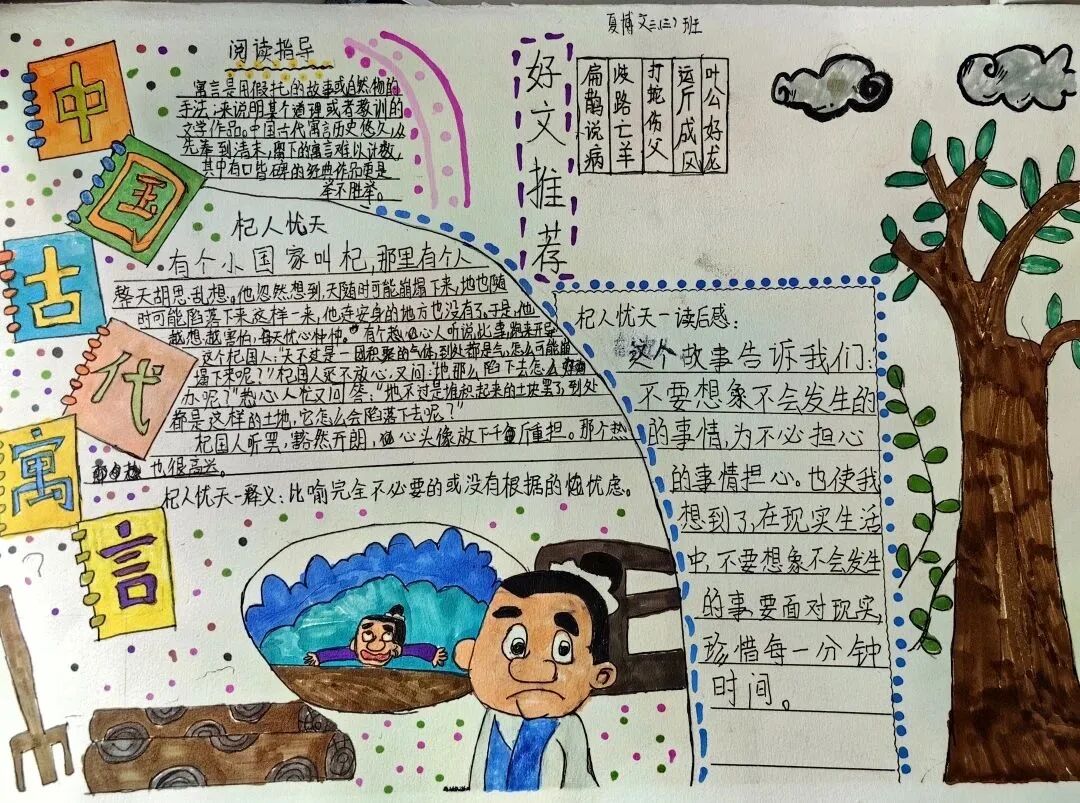 夏博文三(三)班
中国古代寓言
阅读指导
寓言是用假托的故事或自然物的
手法,来说明某个道理或者教训的
文学作品。中国古代寓言历史悠久,从
先秦到清末,留下的寓言难以计数,
其中有口皆碑的经典作品更是
举不胜举。
好文推荐
扁鹊说病
歧路亡羊
打蛇伤父
运斤成风
叶公好龙
杞人忧天
有个小国家叫杞,那里有个人
整天胡思乱想。他忽然想到,天随时可能崩塌下来,地也随
时可能陷落下来,这样一来,他连安身的地方也没有了。于是,他
越想越害怕,每天忧心忡忡。有个热心人听说此事,跑来开导
这个杞国人:"天不过是一团积聚的气体,到处都是气,怎么可能崩
塌下来呢?"杞国人还不放心,又问:"地那么陷下去怎么
办呢?"热心人忙又回答:"地不过是堆积起来的土块罢了,到处
都是这样的土地,它怎么会陷落下去呢?"
杞国人听罢,豁然开朗,心头像放下千斤重担。那个热
也很高兴。
杞人忧天-释义:比喻完全不必要的或没有根据的忧虑。
杞人忧天-读后感:
这个故事告诉我们:
不要想象不会发生的
的事情,为不必担心
的事情担心。也使我
想到了,在现实生活
中,不要想象不会发生
的事,要面对现实,
珍惜每一分钟
时间。